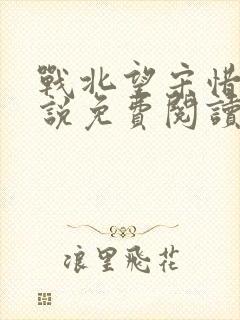 戰北望宋惜
說免費閱讀
浪里飛花